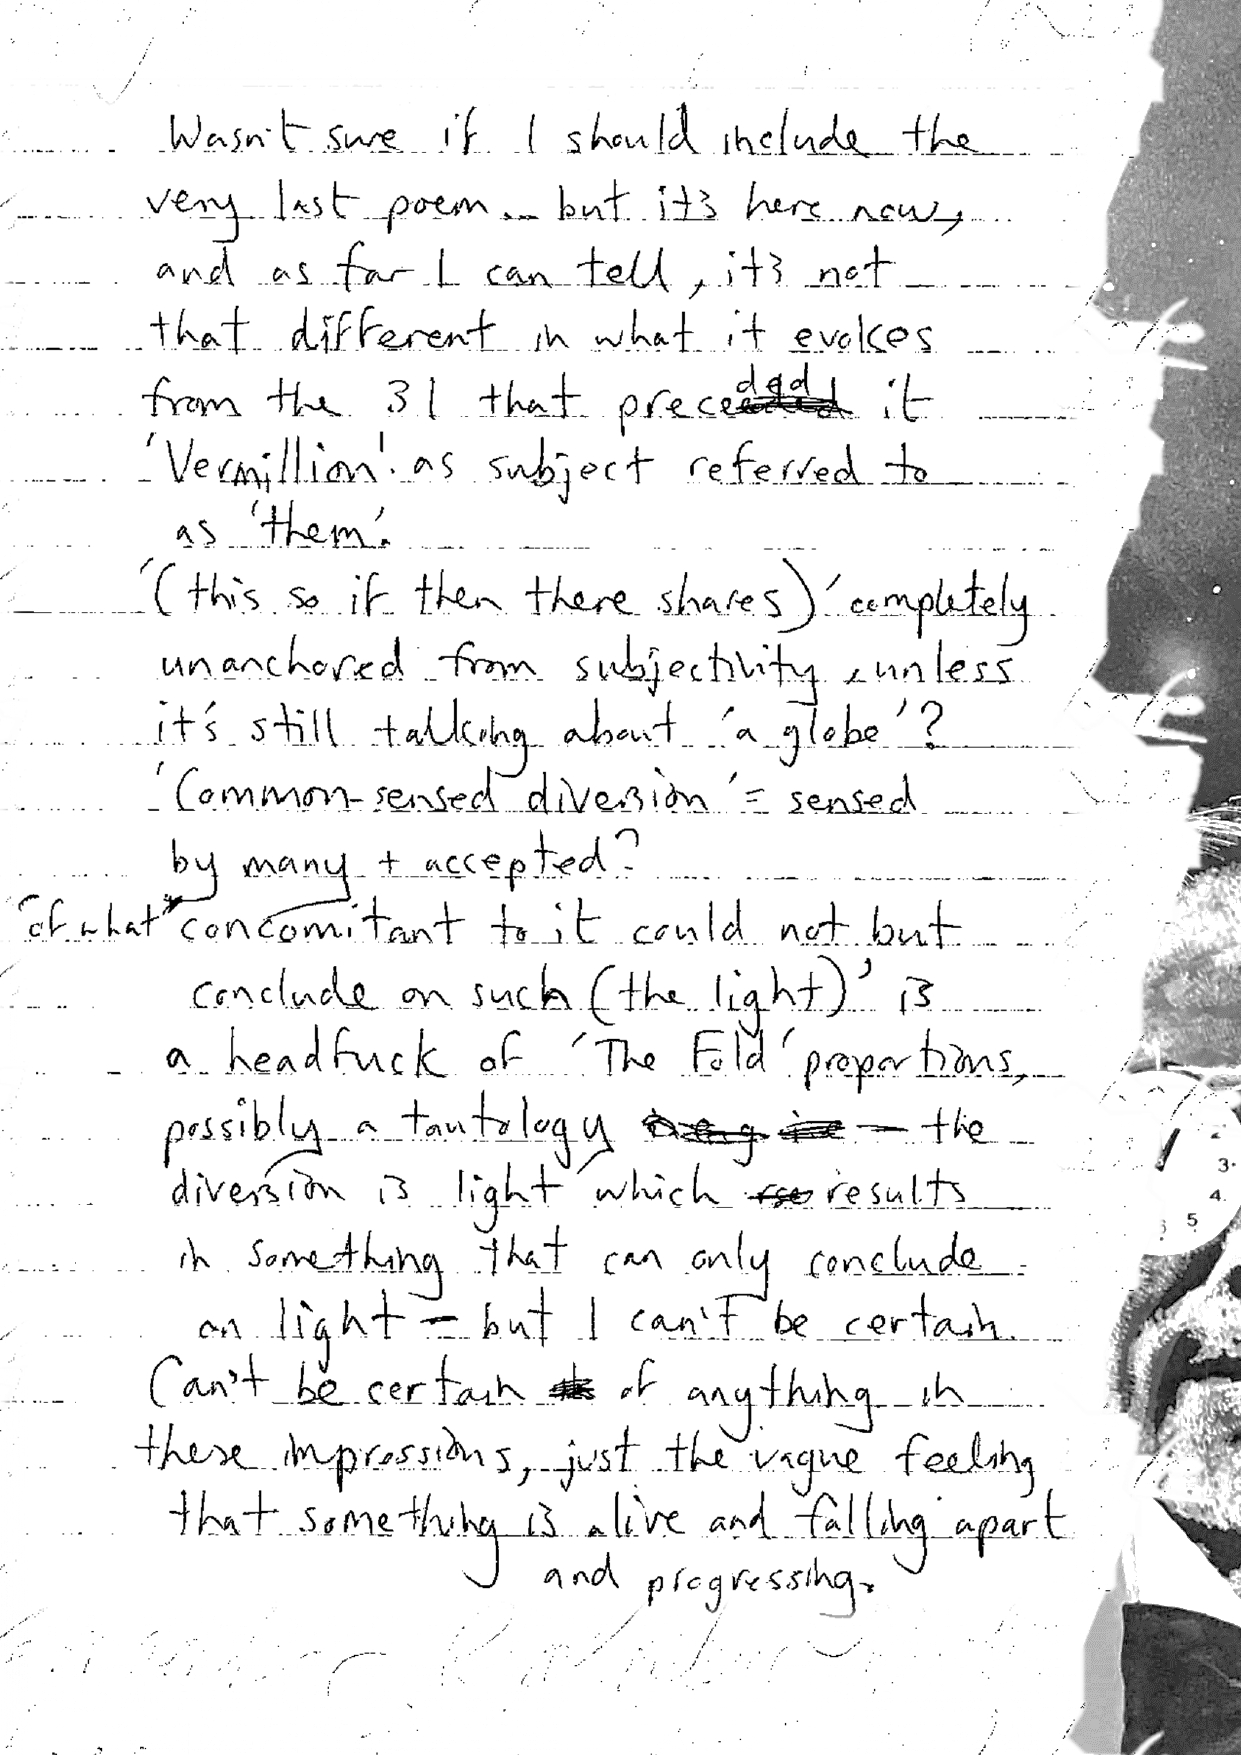 Wasn't sure if I should include the
very last poem... but it's here now,
and as far I can tell, it's not
that different in what it evokes
from the 31 that preceded it
'Vermillion'. as subject referred to
as 'them'.
'(this so if then there shares)' completely
unanchored from subjectivity, unless
it's still talking about 'a globe'?
'Common-sensed diversion' = sensed
by many + accepted?
"of what" concomitant to it could not but
conclude on such (the light)' is
a headfuck of 'The Fold' proportions,
possibly a tautology — the
diversion is light which results
in something that can only conclude
on light – but I can't be certain.
Can't be certain of anything in
these impressions, just the vague feeling
that something is alive and falling apart
and progressing.
2
3.
4.
5
6